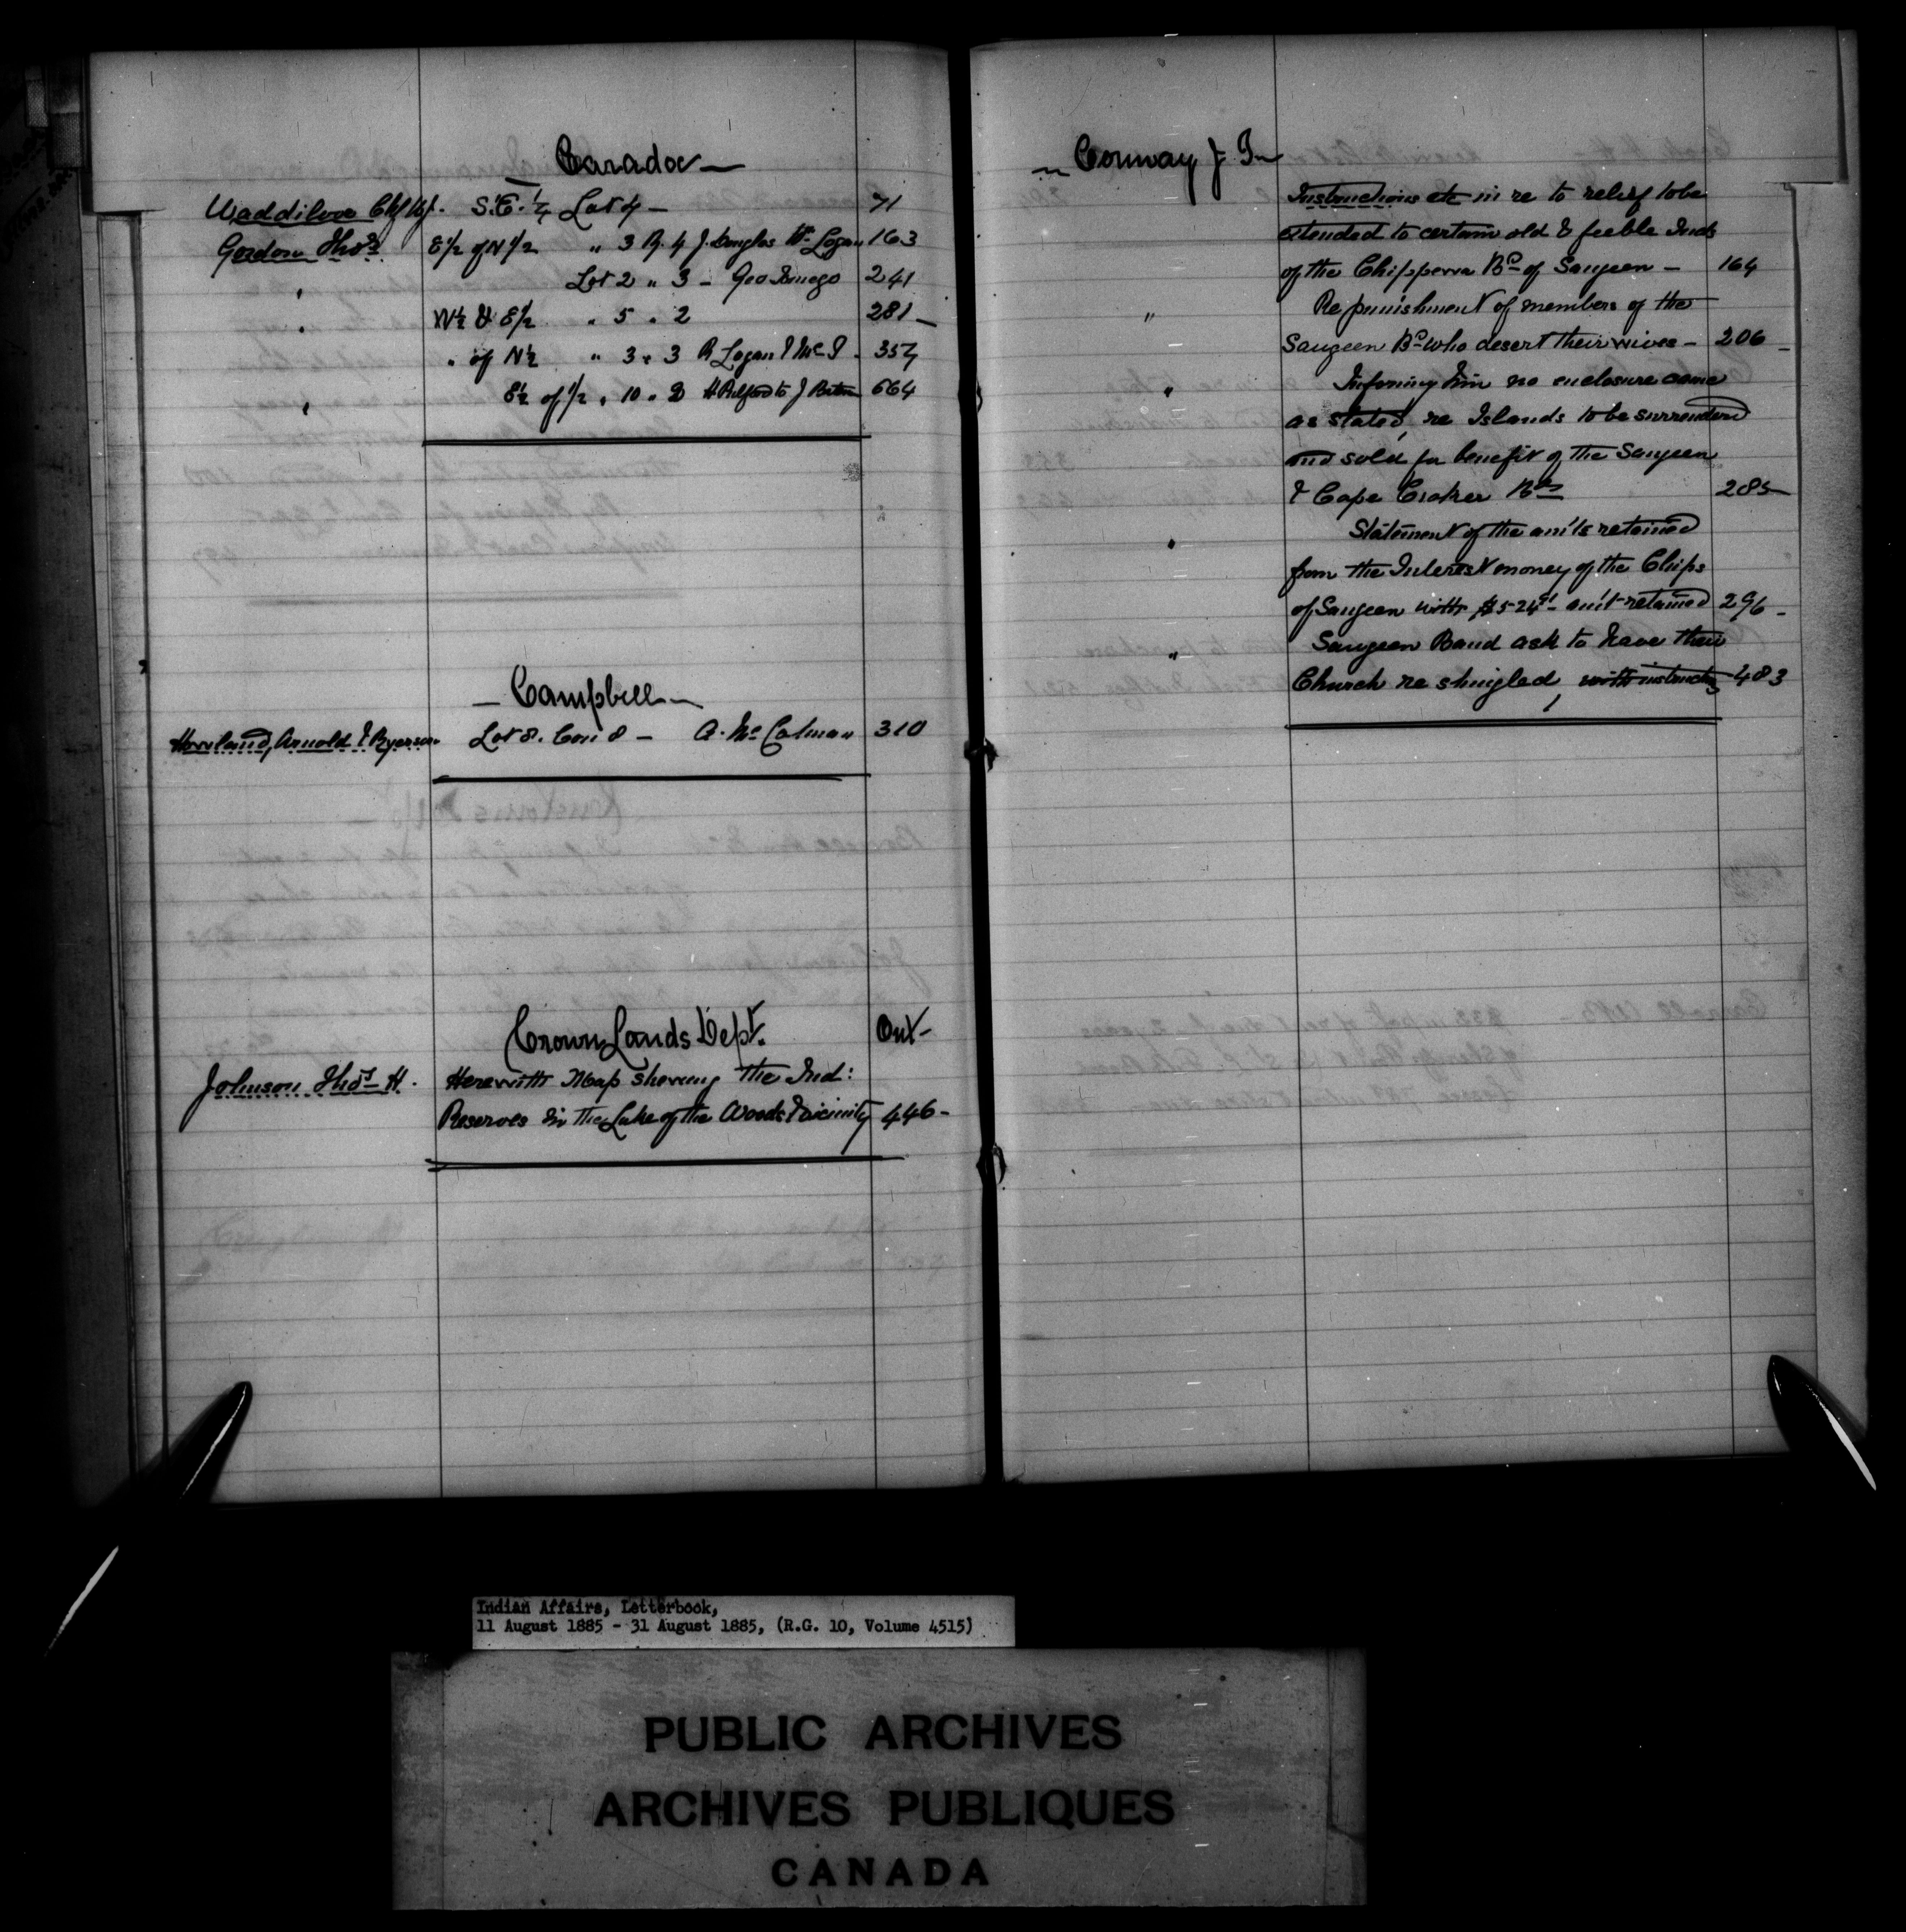 Caradoc
Waddilove S.E. 1/4 Lot 4 — 71
Gordon Thos. E1/2 of N1/2 " 3 R. 4 J. Douglas Wm Logan 163
" Lot 2 " 3 - Geo 241
" N1/2 & E1/2 " 5 " 2 281 —
" of N1/2 " 3 " 3 R Logan & 357
" E1/2 of 1/2 " 10 " 2 to J 664
— Campbell —
Howland, Arnold & Ryerson Lot 8. Con 8 — A. McCalman 310
Crown Lands Dept. Ont —
Johnson Thos. H. Herewith Map showing the Ind:
Reserves in the Lake of the Woods & vicinity 446 -
Conway J. J.
Instructions etc in re to relief to be
extended to certain old & feeble Inds
of the Chippewa Bd of Saugeen — 164
" Re punishment of members of the
Saugeen Bd who desert their wives — 206 —
" Informing him no enclosure came
as stated, re Islands to be surrendered
and sold for benefit of the Saugeen
& Cape Croker Bds 285 —
" Statement of the am'ts retained
from the Interest money of the Chips
of Saugeen with $5-24 am't retained 296 -
" Saugeen Band ask to have their
Church re shingled, with instructns 483
Indian Affairs, Letterbook,
11 August 1885 - 31 August 1885, (R.G. 10, Volume 4515)
PUBLIC ARCHIVES
ARCHIVES PUBLIQUES
CANADA